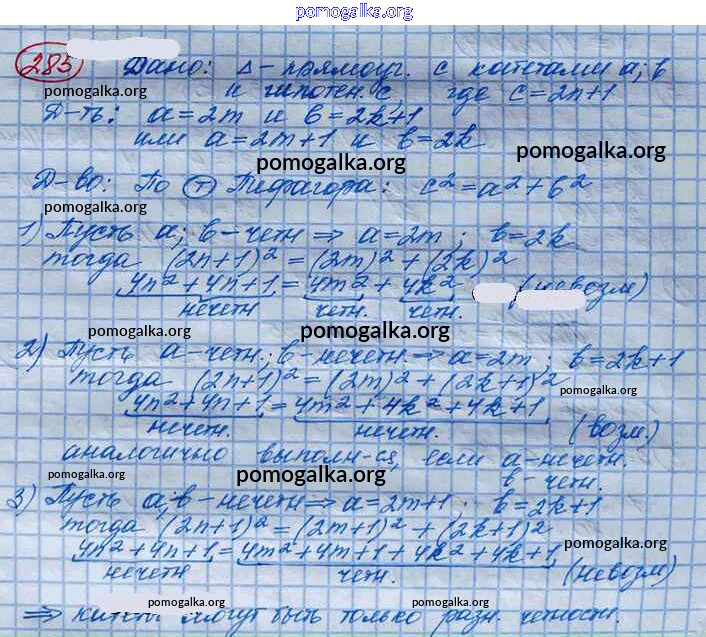 pomogalka.org
285 Дано: Δ - прямоуг. с катетами a; b
pomogalka.org и гипотен. c, где c = 2n+1
Д-ть: a = 2m и b = 2k+1
или a = 2m+1 и b = 2k
pomogalka.org pomogalka.org
Д-во: По Т Пифагора: c² = a² + b²
pomogalka.org
1) Пусть a; b - четн ⇒ a = 2m; b = 2k
тогда (2n+1)² = (2m)² + (2k)²
4n² + 4n + 1 = 4m² + 4k² (невозм)
нечетн четн. четн.
pomogalka.org pomogalka.org
2) Пусть a - четн.; b - нечетн. ⇒ a = 2m; b = 2k+1
тогда (2n+1)² = (2m)² + (2k+1)²
pomogalka.org
4n² + 4n + 1 = 4m² + 4k² + 4k + 1
нечетн. нечетн. (возм.)
аналогично выполн-ся, если a - нечетн.
pomogalka.org pomogalka.org b - четн.
3) Пусть a; b - нечетн ⇒ a = 2m+1; b = 2k+1
тогда (2n+1)² = (2m+1)² + (2k+1)²
pomogalka.org
4n² + 4n + 1 = 4m² + 4m + 1 + 4k² + 4k + 1
нечетн четн. (невозм)
pomogalka.org pomogalka.org
⇒ катеты могут быть только разн. четности.